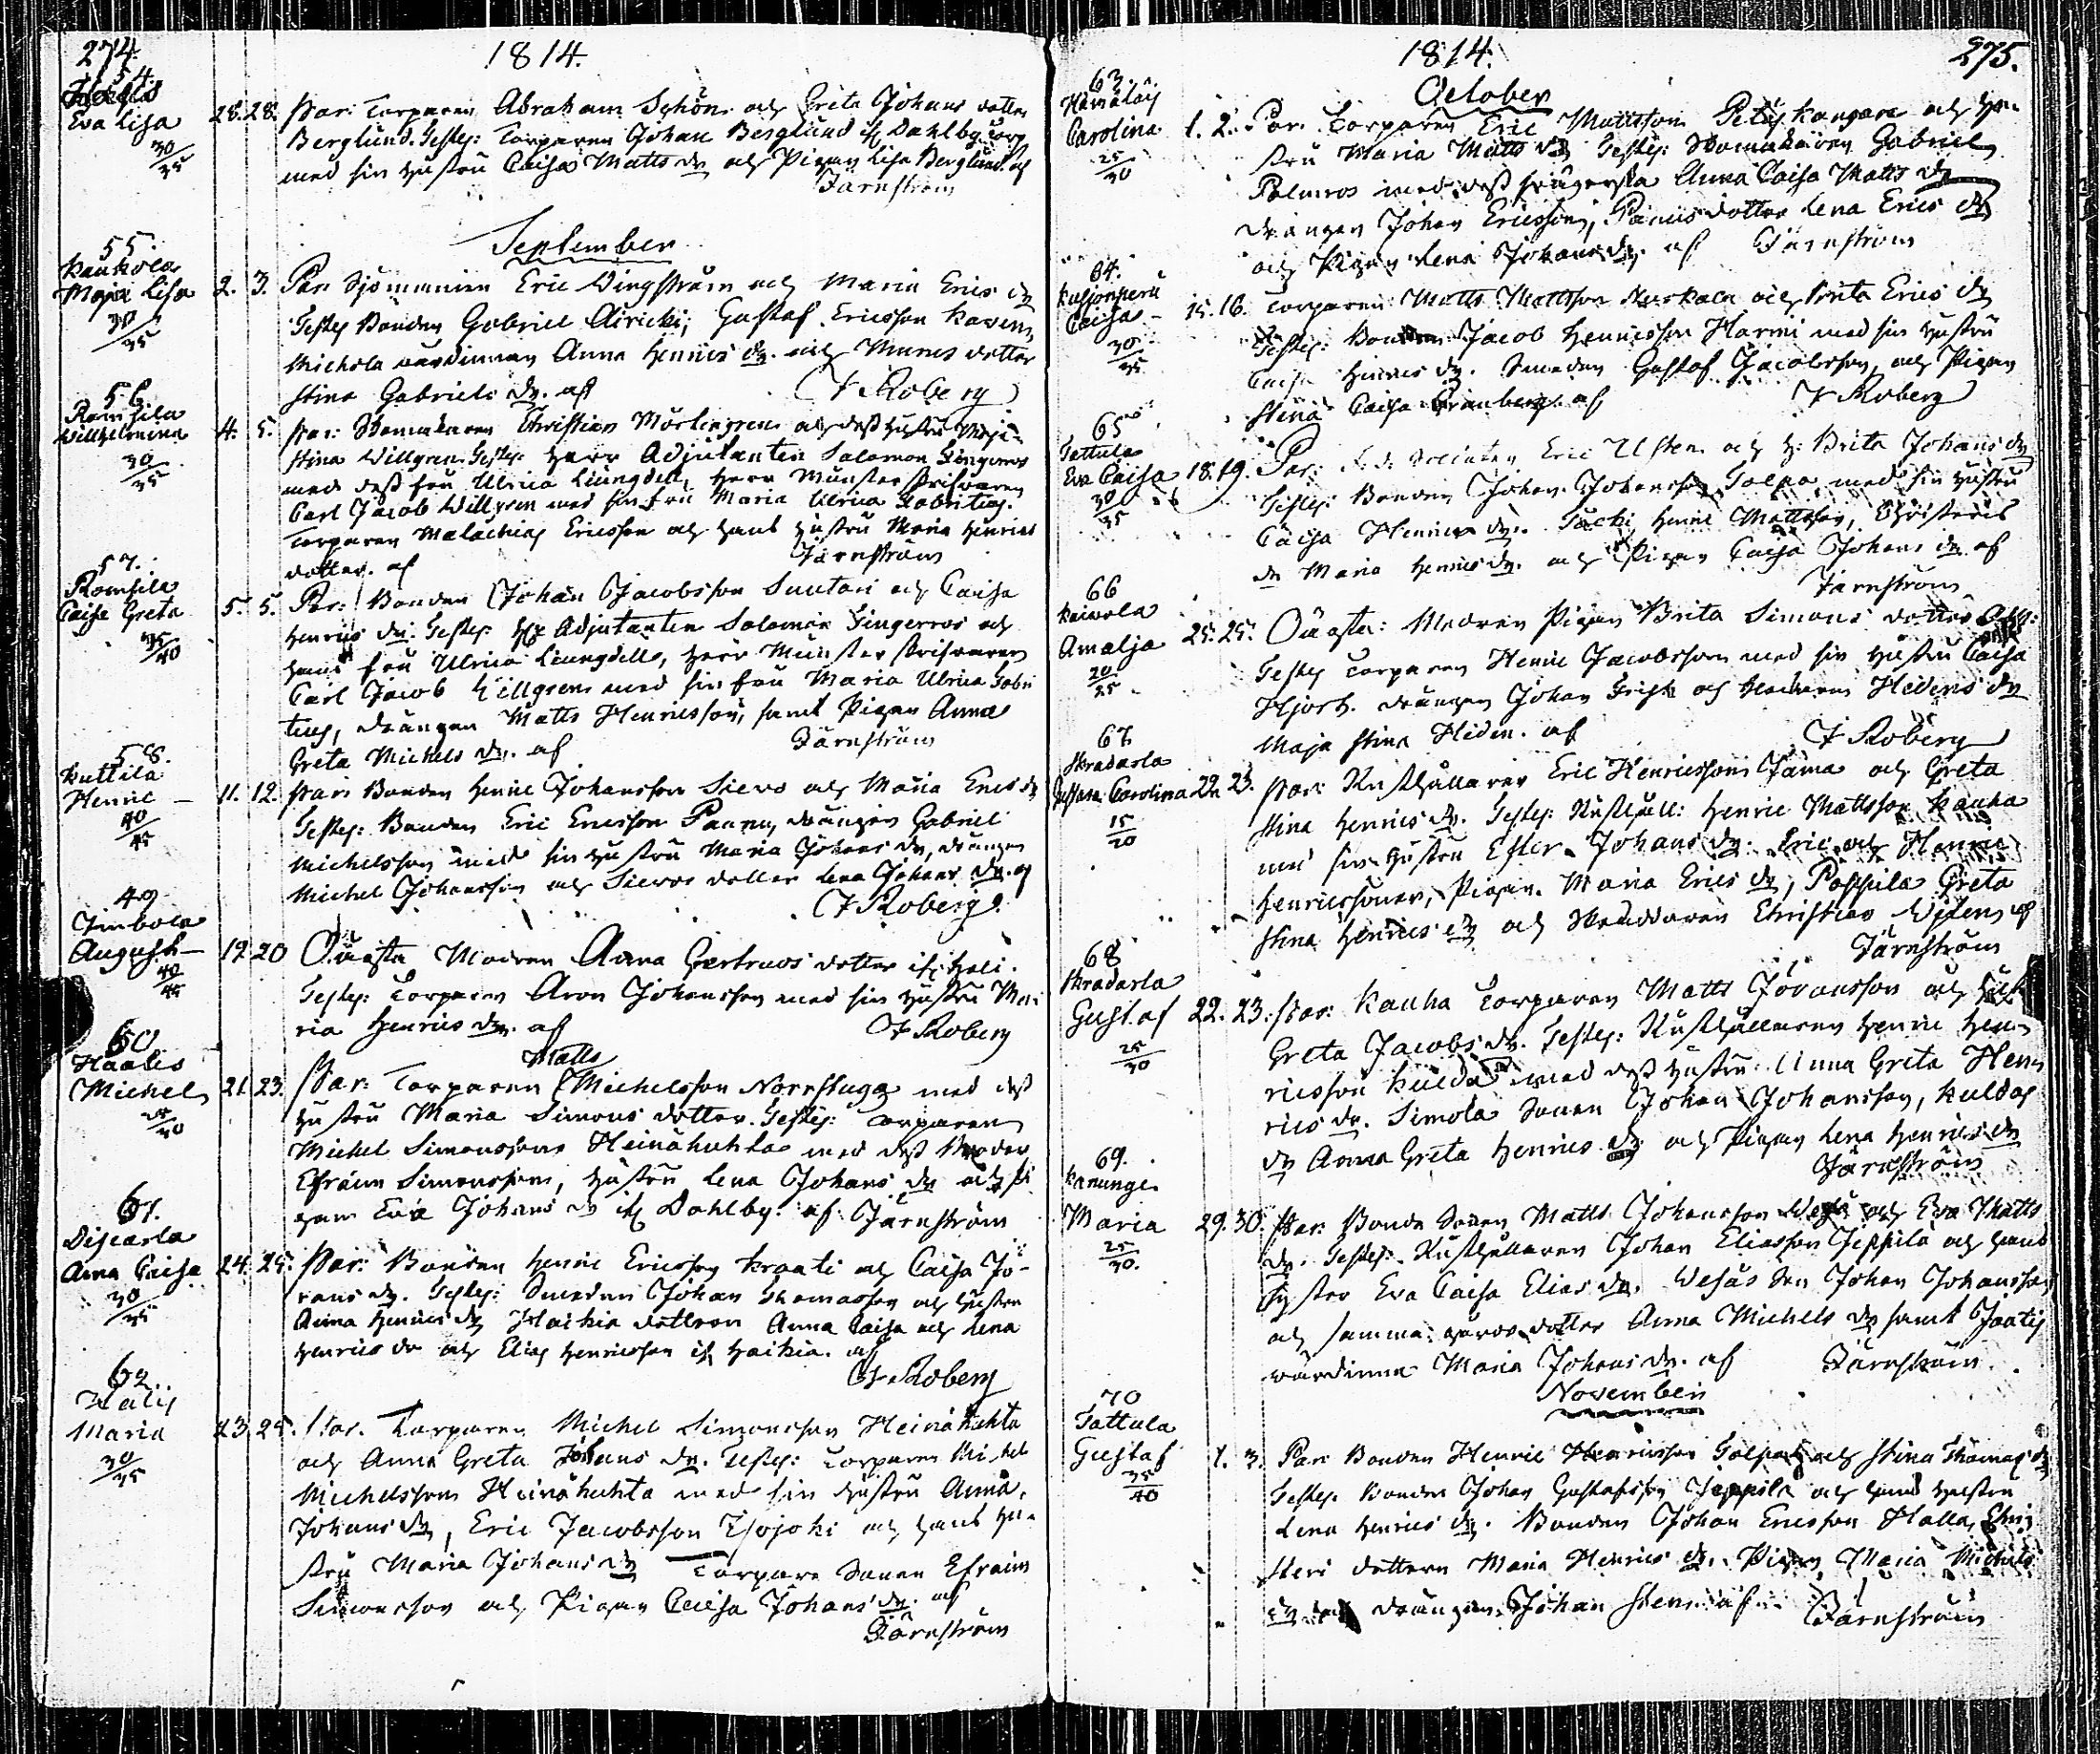 274.
1814.
54.
Eva Lisa
30/35
28. 28. Par: Torparen Abraham Schön och Greta Johans dotter
Berglund. Testes: Torparen Johan Berglund if Dahlby Torp
med sin hustru Caisa Matts dr och Pigan Lisa Berglund. af
Järnström
September
55.
Kaukola
Maja Lisa
30/35
2. 3. Par: Sjömannen Eric Wingström och Maria Erics dr
Testes Bonden Gabriel Airicki, Gustaf Ericsson
Michola värdinnan Anna Henrics dr. och dotter
Stina Gabriels dr. af F Roberg
56.
Romsila
Willhelmina
30/35
4. 5. Par: Skomakaren Christian Mörtengren och dess hustru Maja
Stina Willgren. Testes: Herr Adjutanten Salomon Zingerros
med dess fru Ulrica Liungdell, Herr Munsterskrifvaren
Carl Jacob Willgren med sin fru Maria Ulrica
Torparen Malachias Ericsson och hans hustru Maria Henrics
dotter. af Järnström
57.
Romsila
Caisa Greta
35/40
5. 5. Par: Bonden Johan Jacobsson Suutari och Caisa
Henrics dr. Testes: Hr Adjutanten Salomon Zingerros och
hans fru Ulrica Liungdell, Herr Munsterskrifvaren
Carl Jacob Willgren med sin fru Maria Ulrica
drängen Matts Henricsson, samt Pigan Anna
Greta Michels dr. af Järnström
58.
Kuttila
Henric
40/45
11. 12. Par: Bonden Henric Johansson Sievo och Maria Erics dr
Testes: Bonden Eric Ericsson Paavu, drängen Gabriel
Michelsson med sin hustru Maria Johans dr, drängen
Michel Johansson och Sievos dotter Lena Johans dr. af
F Roberg.
49
Jimbola
August
40/45
19. 20 Oäcta Modren Anna Gertruds dotter
Testes: Torparen Aron Johansson med sin hustru Ma-
ria Henrics dr. af F Roberg
60
Haalis
Michel
25/30
Matts
21. 23. Par: Torparen Michelsson Norrstuga med dess
hustru Maria Simons dotter. Testes: Torparen
Michel Simonsson Heinähuhta med dess Broder
Efraim Simonsson, hustru Lena Johans dr och Pi
gan Eva Johans dr if Dahlby. af Järnström
61.
Anna Caisa
30/35
24. 25. Par: Bonden Henric Ericsson Kraati och Caisa Jö-
rans dr. Testes: Smeden Johan Thomasson och hustru
Anna Henrics dr Haikia dottren Anna Caisa och Lena
Henrics dr och Elias Henricsson if Haikia. af
F. Roberg
62.
Maria
30/35
23. 25. Par. Torparen Michel Simonsson Heinähuhta
och Anna Greta Johans dr. Testes: Torparen Michel
Michelsson Heinähuhta med sin hustru Anna
Johans dr, Eric Jacobsson Isojoki och hans hu-
stru Maria Johans dr Torpare Sonen Efraim
Simonsson och Pigan Caisa Johans dr. af
Järnström
1814.
275.
October
63.
Carolina
25/30
1. 2. Par: Torparen Eric Mattsson Kangare och Hu-
stru Maria Matts dr Testes: Skomakaren Gabriel
Palmros med dess Maria Anna Caisa Matts dr
drängen Johan Ericsson, dotter Lena Erics dr
och Pigan Lena Johans dr. af Järnström
64.
Caisa
30/35
15. 16. Torparen Matts Mattsson och Brita Erics dr
Testes: Bonden Jacob Henricsson Harmi med sin hustru
Caisa Henrics dr. Smeden Gustaf Jacobsson, och Pigan
Stina Caisa Granberg. af F Roberg
65
Tattula
Eva Caisa
30/35
18. 19. Par: Eric Ulften och h: Brita Johans dr
Testes: Bonden Johan Johansson Tolpo med sin hustru
Caisa Henrics dr. Henric Mattsson,
dr Maria Henrics dr. och Pigan Caisa Johans dr. af
Järnström
66
Amalja
20/25
25. 25. Oäcta: Modren Pigan Brita Simons dotter
Testes Torparen Henric Jacobsson med sin hustru Caisa
Hjort. drängen Johan Frisk och Hedens dr
Maja Stina Heden. af F Roberg
67
Skradarla
Carolina
15/20
22. 23. Par: Rusthållaren Eric Henricsson Jäma och Greta
Stina Henrics dr. Testes: Rusthåll: Henric Mattsson Kauha
med sin hustru Ester Johans dr. Eric och Henric
Henricssöner, Pigan. Maria Erics dr, Pappila Greta
Stina Henrics dr och Skräddaren Christian af
Järnström
68
Skradarla
Gustaf
25/30
22. 23. Par: Kauha Torparen Matts Jöransson och
Greta Jacobs dr. Testes: Rusthållaren Henric Hen-
ricsson Kulda med dess hustru Anna Greta Hen
rics dr. Simola Sonen Johan Johansson, Kuldas
dr Anna Greta Henrics dr och Pigan Lena Henrics dr
Järnström
69.
Kanunge
Maria
25/30.
29. 30. Par: Bonde Sonen Matts Johansson och Eva Matts
dr. Testes: Rusthållaren Johan Eliasson Jeppila och hans
Syster Eva Caisa Elias dr. Wesas Son Johan Johansson
och samma dotter Anna Michels dr samt
värdinna Maria Johans dr. af Järnström.
November
70
Tattula
Gustaf
35/40
1. 3. Par: Bonden Henric Henricsson Tolpo och Stina Thomas dr
Testes. Bonden Johan Gustafsson Jeppila och hans hustru
Lena Henrics dr. Bonden Johan Ericsson Halla,
dottern Maria Henrics dr. Pigan Maria Michels
dr och drängen Johan Sten af Järnström